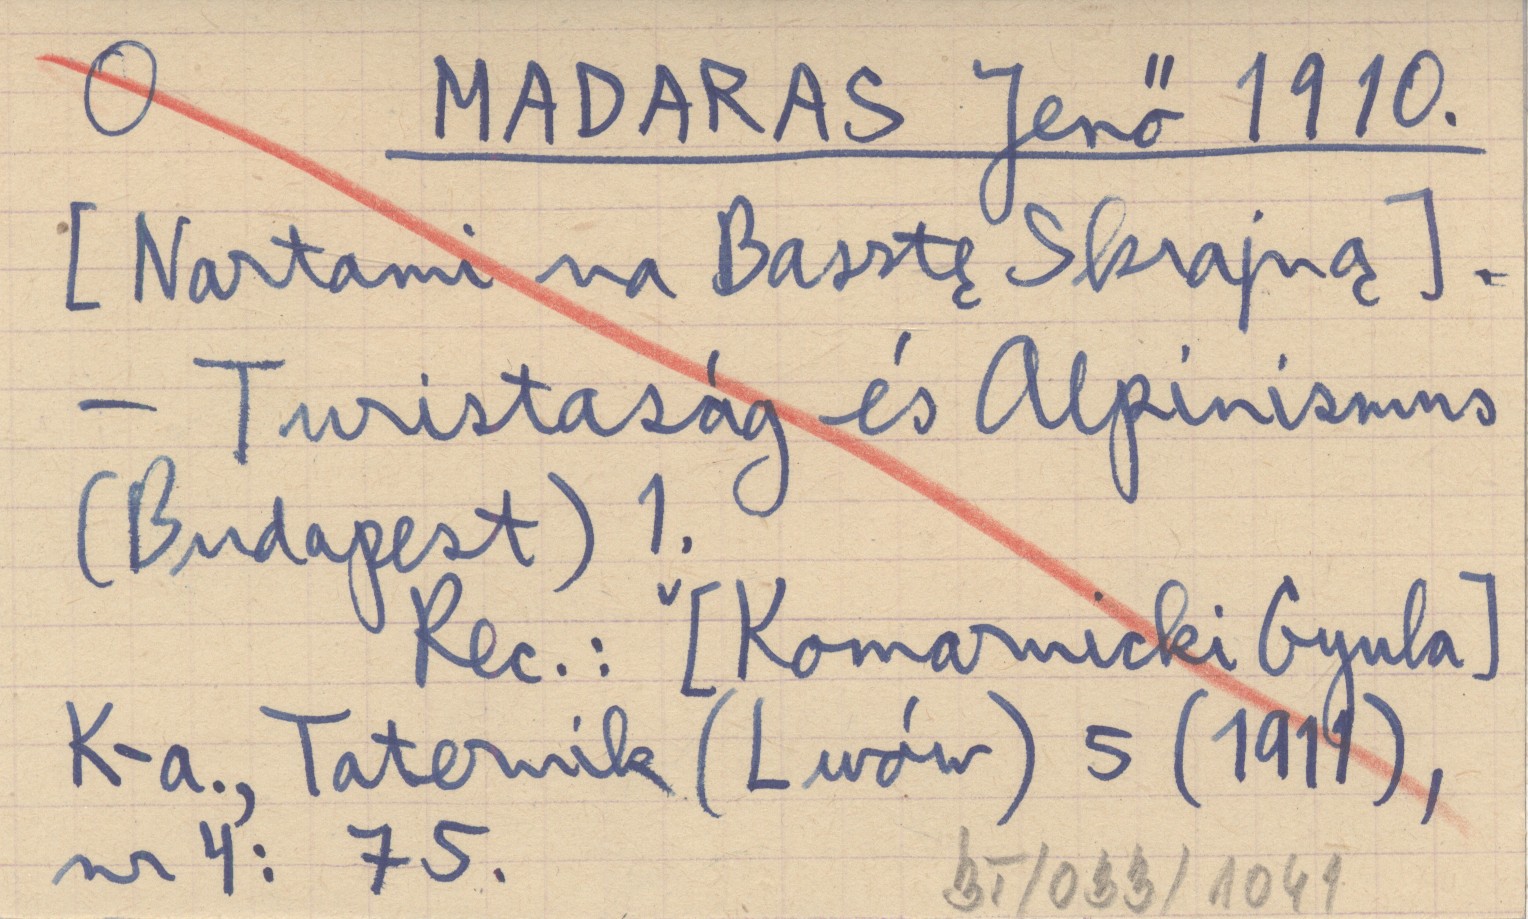 O MADARAS Jenő 1910.
[Nartami na Basztę Skrajną]. -
- Turistaság és Alpinismus
(Budapest) 1.
Rec.: ˇ[Komarnicki Gyula]
K-a., Taternik (Lwów) 5 (1911),
nr 4: 75.
BI/033/1041